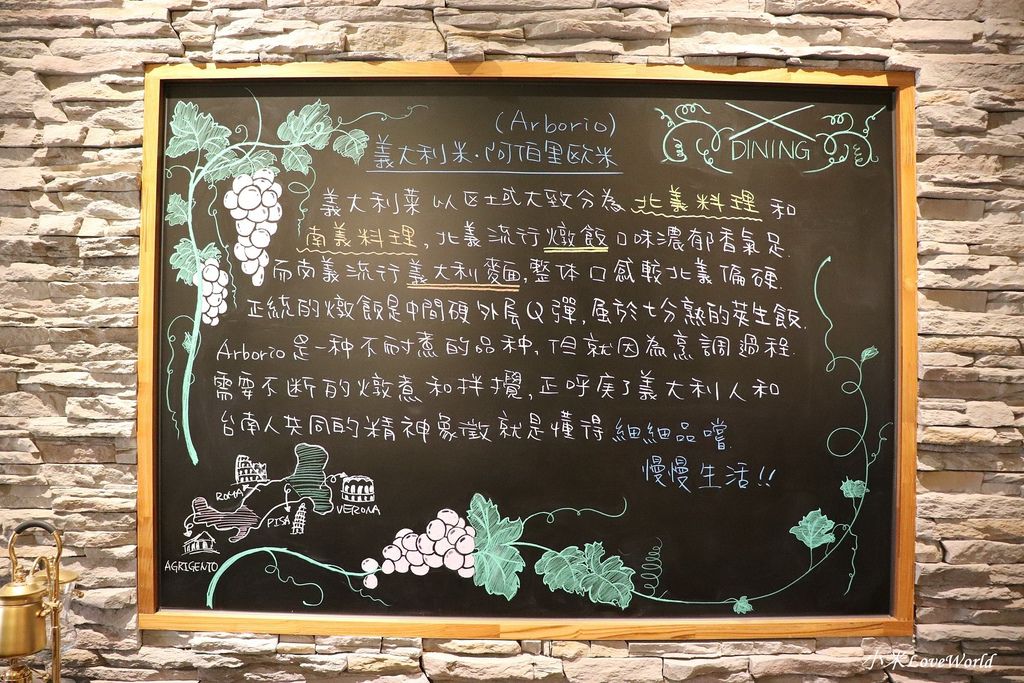 (Arborio)
義大利米·阿伯里欧米
DINING
義大利菜以区域大致分為北義料理和
南義料理,北義流行燉飯口味濃郁香氣足.
而南義流行義大利麵,整体口感較北義偏硬.
正統的燉飯是中間硬外层Q彈,屬於七分熟的夾生飯.
Arborio是一种不耐煮的品种,但就因為烹調過程.
需要不断的燉煮和拌攪,正呼应了義大利人和
台南人共同的精神象徵就是懂得細細品嚐.
慢慢生活!!
ROMA
VERONA
PISA
AGRIGENTO
小米LoveWorld